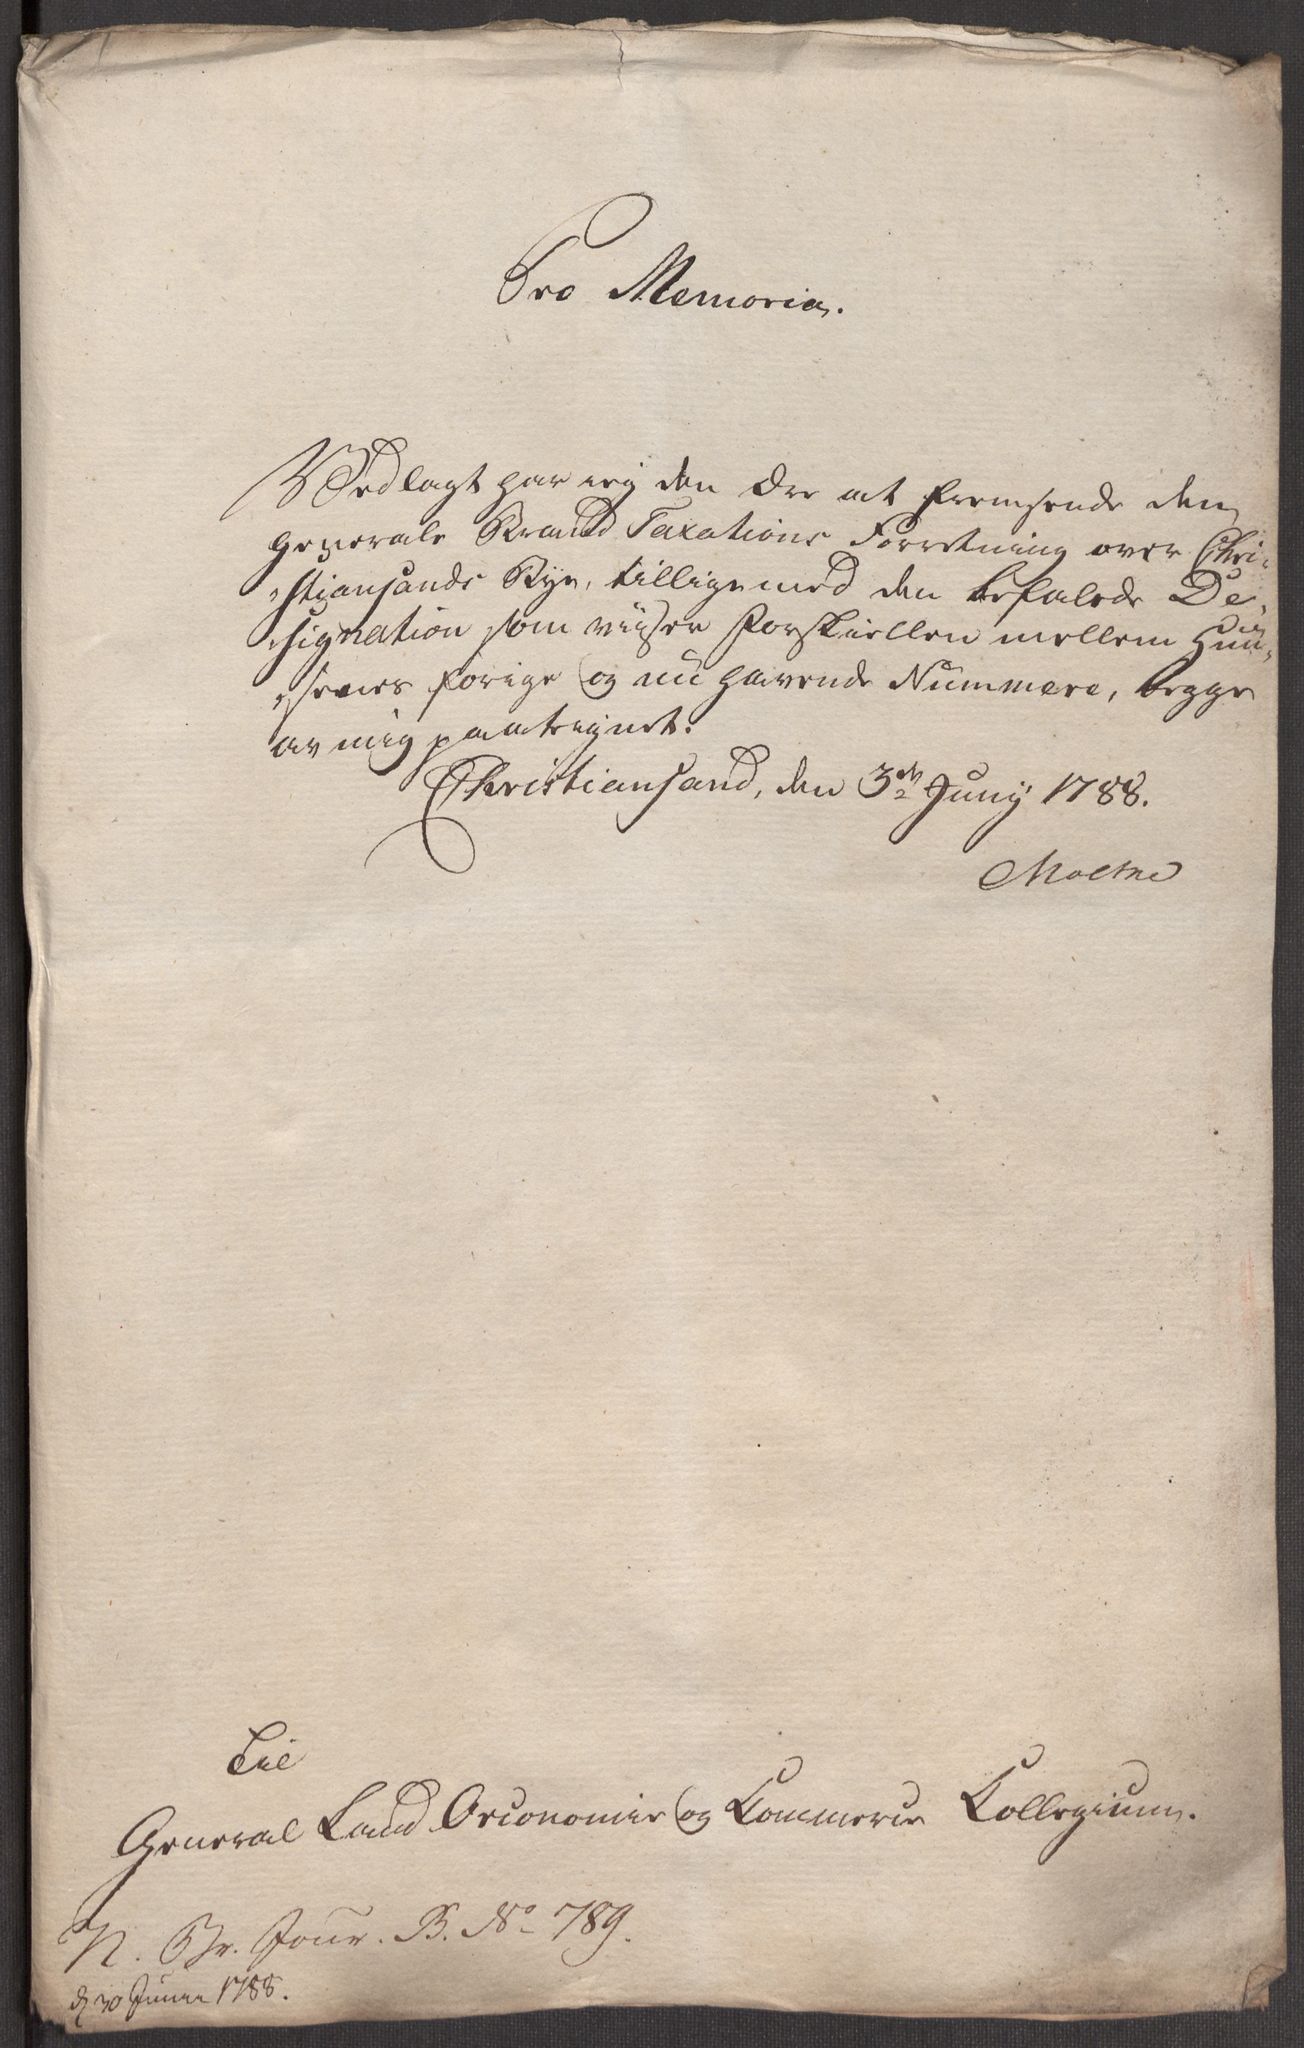 Pro Memoria.
Vedlagt har ieg den Ære at fremsende den
generale Brand Taxations Forretning over Chri-
stiansands Bye, tilligemed den befalede De-
signation som viiser Forskiellen mellem Huu-
senes forige og nu havende Nummere, begge
av mig paategnet.
Christiansand, den 3de Juny 1788.
Moltke
Til
General Land Oeconomie og Commerce Collegium.
N. Br. Jour. B. No 789.
d. 30 Junii 1788.